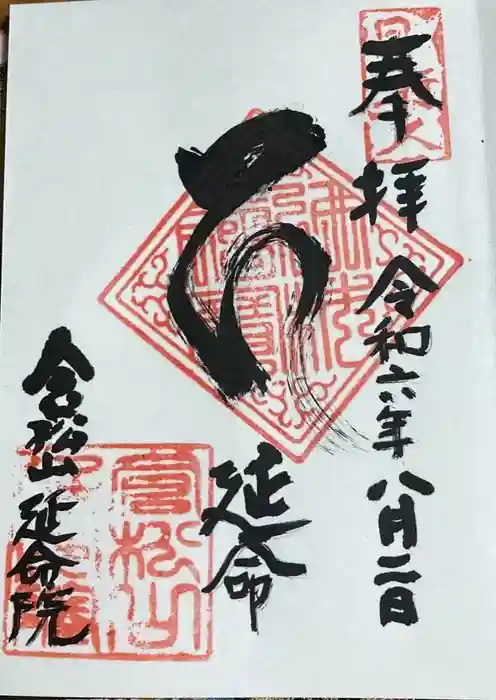 奉拝 令和六年八月二日
延命
宮松山 延命院